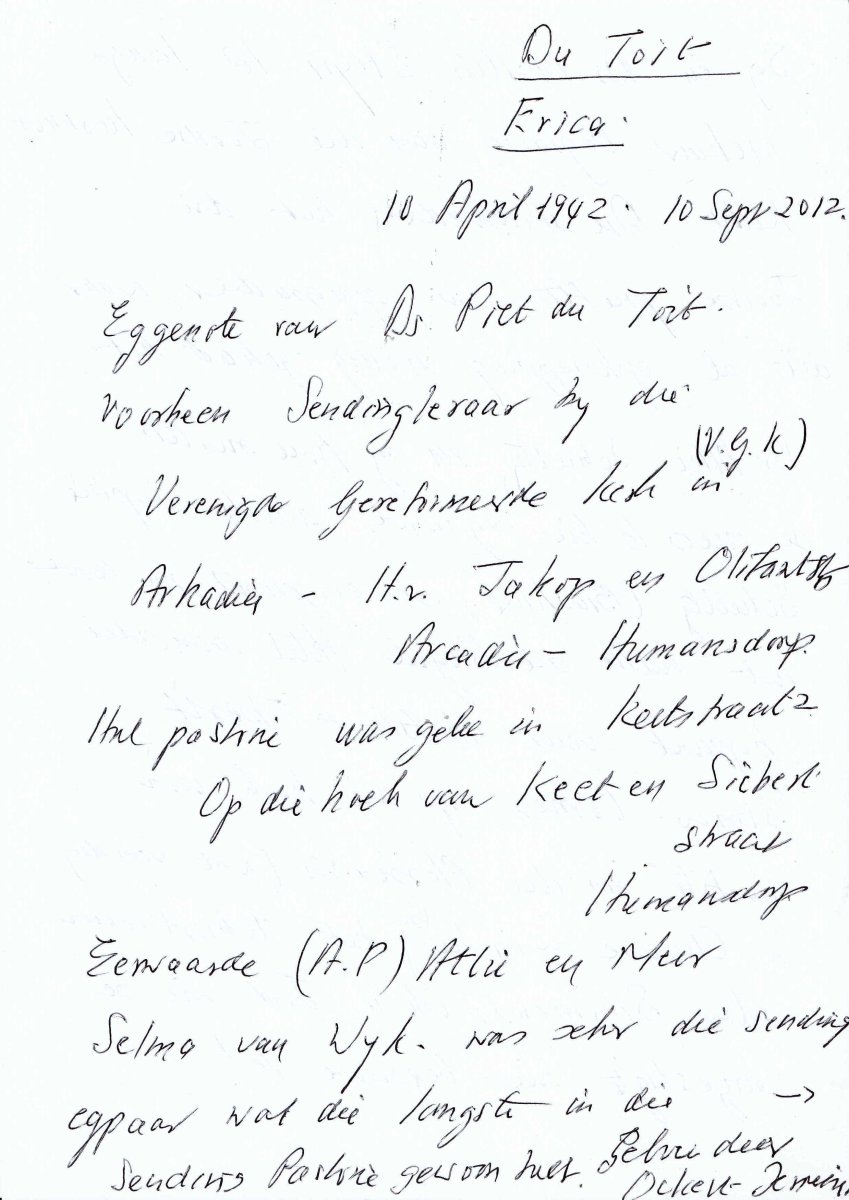 Du Toit
Erica.
10 April 1942. 10 Sept 2012.
Eggenote van Ds Piet du Toit.
Voorheen Sendingleraar by die
(V.G.K)
Verenigde Gereformeerde Kerk in
Arkadiër - H.v. Jakop en Olifantstr
Arcadië - Humansdorp.
Hul pastorie was geleë in Keetstraat 2
Op die hoek van Keet en Siebert
straat
Humansdorp
Eerwaarde (A.P) Attie en Mevr
Selma van Wyk. was seker die sending
egpaar wat die langste in die →
Sending Pastorie gewoon het. Gebou deur